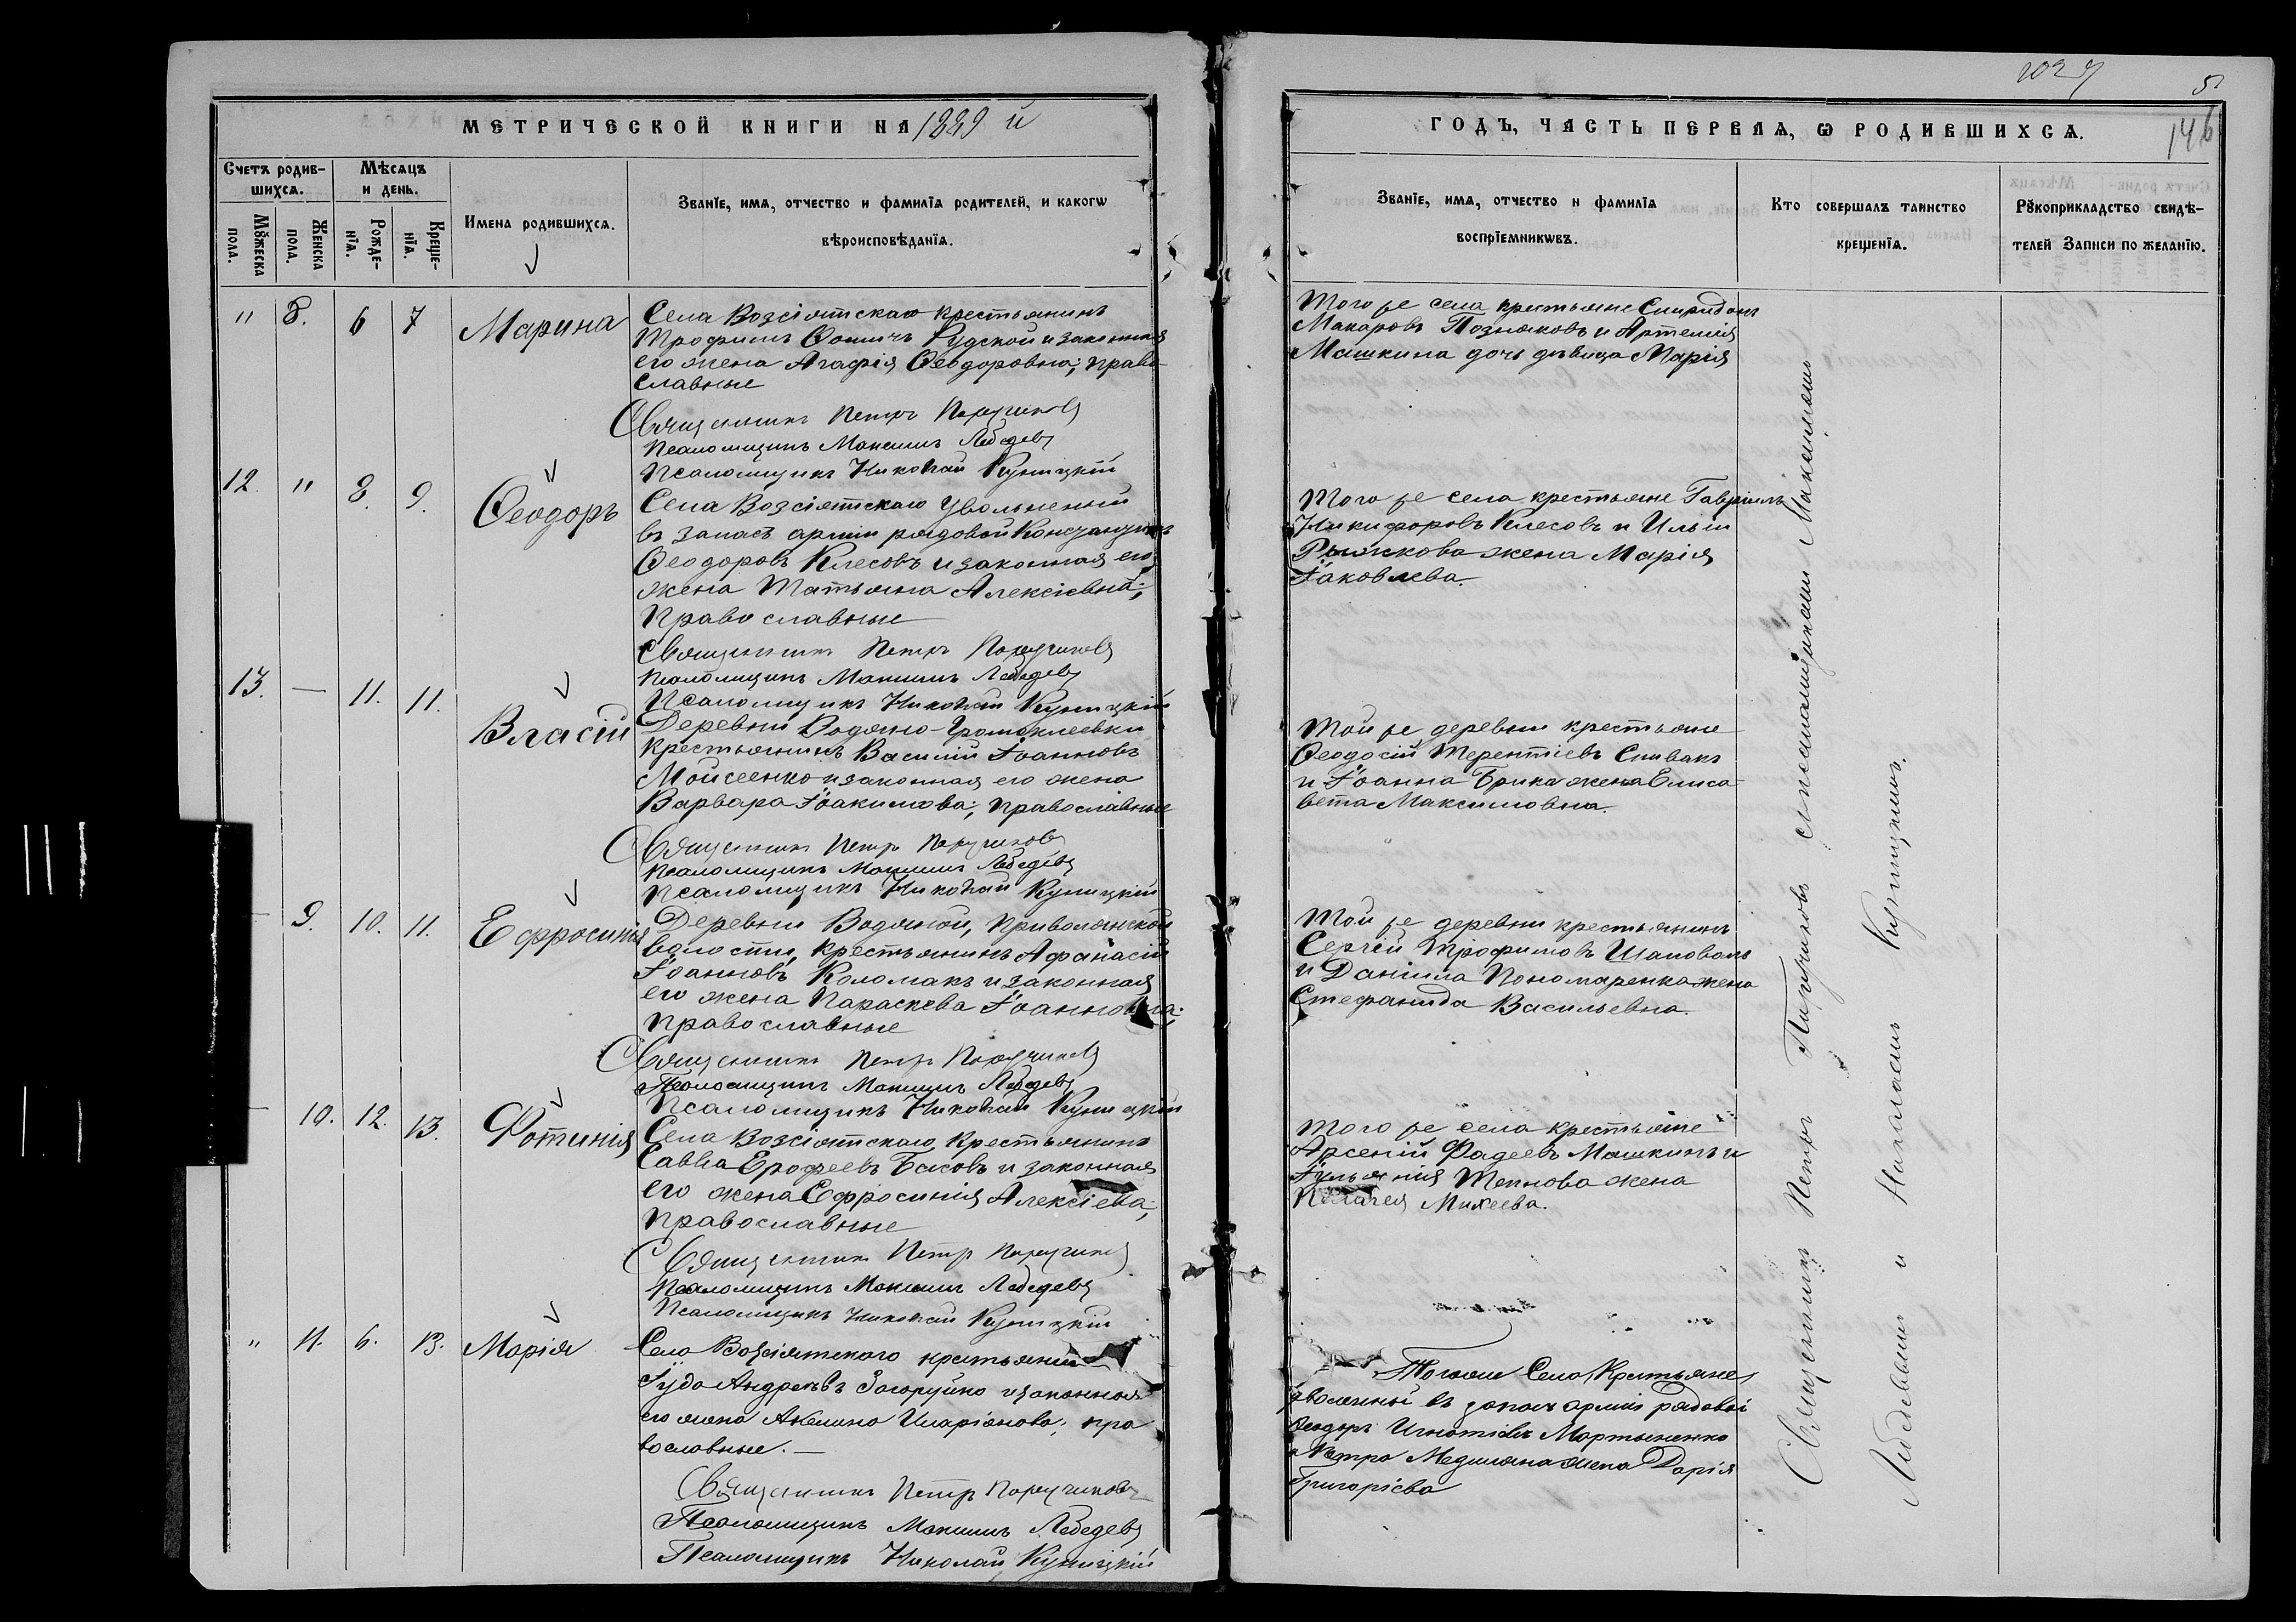 1027
5
146
МЕТРИЧЕСКОЙ КНИГИ НА 1889 й
Счетъ родив-
шихсѧ.
Мѣсѧцъ
и день.
Мꙋжеска
пола.
Женска
пола.
Рожде-
нїѧ.
Креще-
нїѧ.
Имена родившихсѧ.
Званїе, имѧ, отчество и фамилїѧ родителей, и какогѡ
вѣроисповѣданїѧ.
" 8. 6 7 Марина
Села Возсіятскаго крестьянинъ
Трофимъ Ѳомичъ Рудской и законная
его жена Агафія Ѳеодоровна; право-
славные
Священникъ Петръ
Псаломщикъ Максимъ Лебедевъ
Псаломщикъ Николай Куницкій
12. " 8. 9. Ѳеодоръ
Села Возсіятскаго уволненный
въ запасъ арміи рядовой
Ѳеодоровъ Клесовъ и законная его
жена Татьяна Алексіевна;
Православные
Священникъ Петръ
Псаломщикъ Максимъ Лебедевъ
Псаломщикъ Николай Куницкій
13. — 11. 11. Власій
Деревни Водяно-Громоклеевки
крестьянинъ Василій Іоанновъ
Мойсеенко и законная его жена
Варвара Іоакимова; православные
Священникъ Петръ
Псаломщикъ Максимъ Лебедевъ
Псаломщикъ Николай Куницкій
— 9. 10. 11. Ефросинія
Деревни Водяной, Привольянской
волости, крестьянинъ Афанасій
Іоанновъ Коломакъ и законная
его жена Параскева Іоанновна;
православные
Священникъ Петръ
Псаломщикъ Максимъ Лебедевъ
Псаломщикъ Николай Куницкій
— 10. 12. 13. Фотинія
Села Возсіятскаго крестьянинъ
Савва Ерофеевъ Басовъ и законная
его жена Ефросинія Алексіева;
православные
Священникъ Петръ
Псаломщикъ Максимъ Лебедевъ
Псаломщикъ Николай Куницкій
" 11. 6. 13. Марія
Села Возсіятского крестьянинъ
Іуда Андреевъ Загоруйко и законная
его жена Акилина Иларіонова; пра
вославные. —
Священникъ Петръ
Псаломщикъ Максимъ Лебедевъ
Псаломщикъ Николай Куницкій
ГОДЪ, ЧАСТЬ ПЕРВАѦ, Ѡ РОДИВШИХСѦ.
Званїе, имѧ, отчество и фамилїѧ
воспрїемникѡвъ.
Кто совершалъ таинство
крещенїѧ.
Рꙋкоприкладство свидѣ-
телей Записи по желанїю.
Того же села крестьяне Спиридонъ
Макаровъ Позняковъ и Артемія
Машкина дочь дѣвица Марія
Того же села крестьяне Гавриилъ
Никифоровъ Клесовъ и Ильи
Рыжкова жена Марія
Іаковлева.
Той же деревни крестьяне
Ѳеодосій Терентіевъ Спивакъ
и Іоанна Брика жена Елиса
вета Максимовна.
Той же деревни крестьянинъ
Сергѣй Трофимовъ Шаповалъ
и Даніила Пономаренка жена
Стефанида Васильевна.
Того же села крестьяне
Арсеній Фадеевъ Машкинъ и
жена
Пелагея Михеева.
Тогоже Села Крестьяне
уволенный въ запасъ арміи рядовой
Ѳеодоръ Игнатіевъ Мартыненко
и Петра жена Дарія
Григоріева
Священникъ Петръ съ псаломщиками Максимомъ
Лебедевымъ и Николаемъ Куницкимъ.